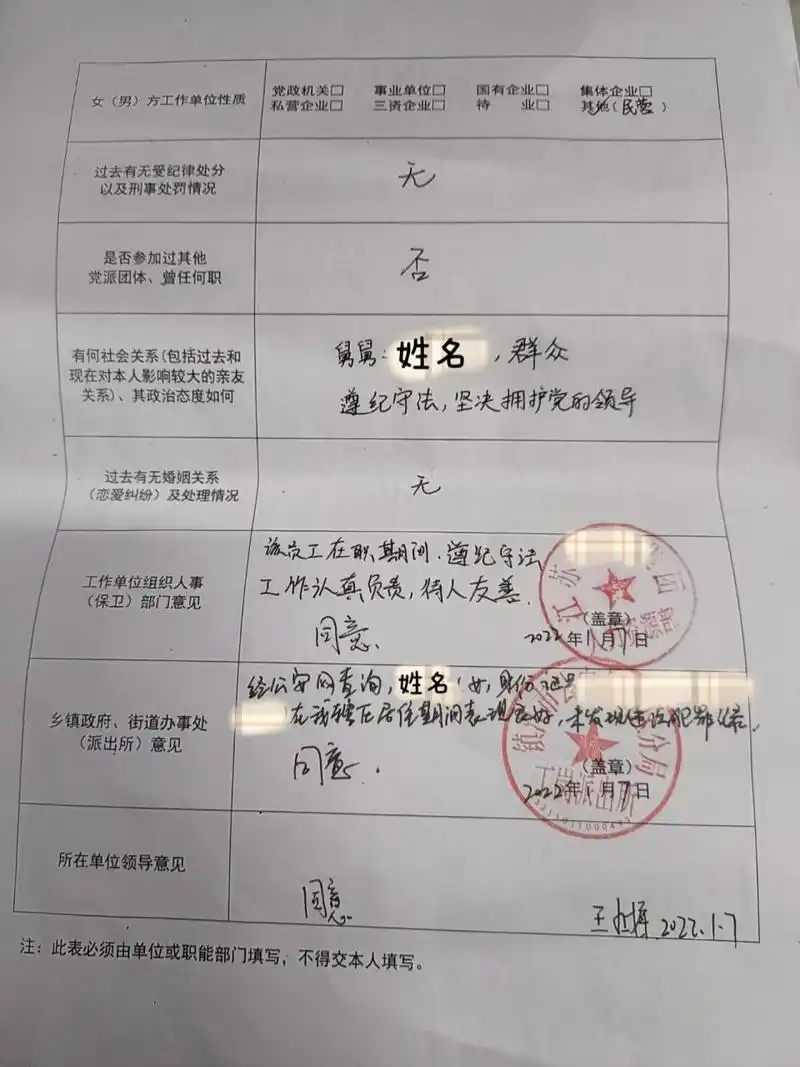 女（男）方工作单位性质
党政机关□ 事业单位□ 国有企业□ 集体企业□
私营企业□ 三资企业□ 待 业□ 其他（民营）
过去有无受纪律处分
以及刑事处罚情况
无
是否参加过其他
党派团体、曾任何职
否
有何社会关系(包括过去和
现在对本人影响较大的亲友
关系)、其政治态度如何
舅舅：姓名，群众
遵纪守法，坚决拥护党的领导
过去有无婚姻关系
（恋爱纠纷）及处理情况
无
工作单位组织人事
（保卫）部门意见
该员工在职期间，遵纪守法
工作认真负责，待人友善．
同意．
（盖章）
2022年1月7日
江苏
资源部
乡镇政府、街道办事处
（派出所）意见
经公安网查询，姓名（女，身份证号
在我辖区居住期间表现良好，未发现违法犯罪记录．
同意．
（盖章）
2022年1月7日
镇
分局
派出所
所在单位领导意见
同意
王 2022.1.7
注：此表必须由单位或职能部门填写，不得交本人填写。